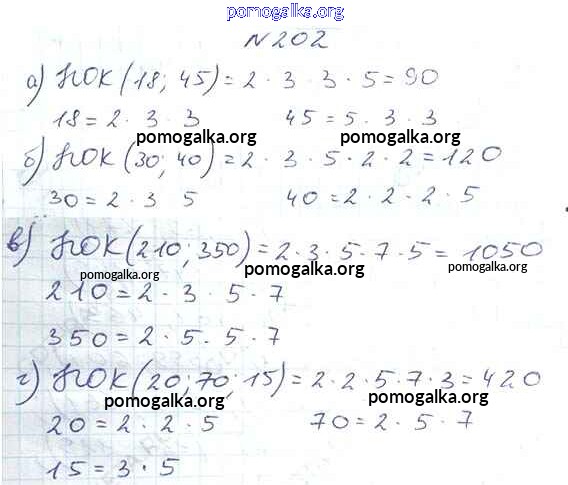 pomogalka.org
N 202
а) НОК (18; 45) = 2 · 3 · 3 · 5 = 90
18 = 2 · 3 · 3 45 = 5 · 3 · 3
pomogalka.org pomogalka.org
б) НОК (30; 40) = 2 · 3 · 5 · 2 · 2 = 120
30 = 2 · 3 5 40 = 2 · 2 · 2 · 5
в) НОК (210; 350) = 2 · 3 · 5 · 7 · 5 = 1050
pomogalka.org pomogalka.org pomogalka.org
210 = 2 · 3 · 5 · 7
350 = 2 · 5 · 5 · 7
г) НОК (20; 70; 15) = 2 · 2 · 5 · 7 · 3 = 420
pomogalka.org pomogalka.org
20 = 2 · 2 · 5 70 = 2 · 5 · 7
15 = 3 · 5